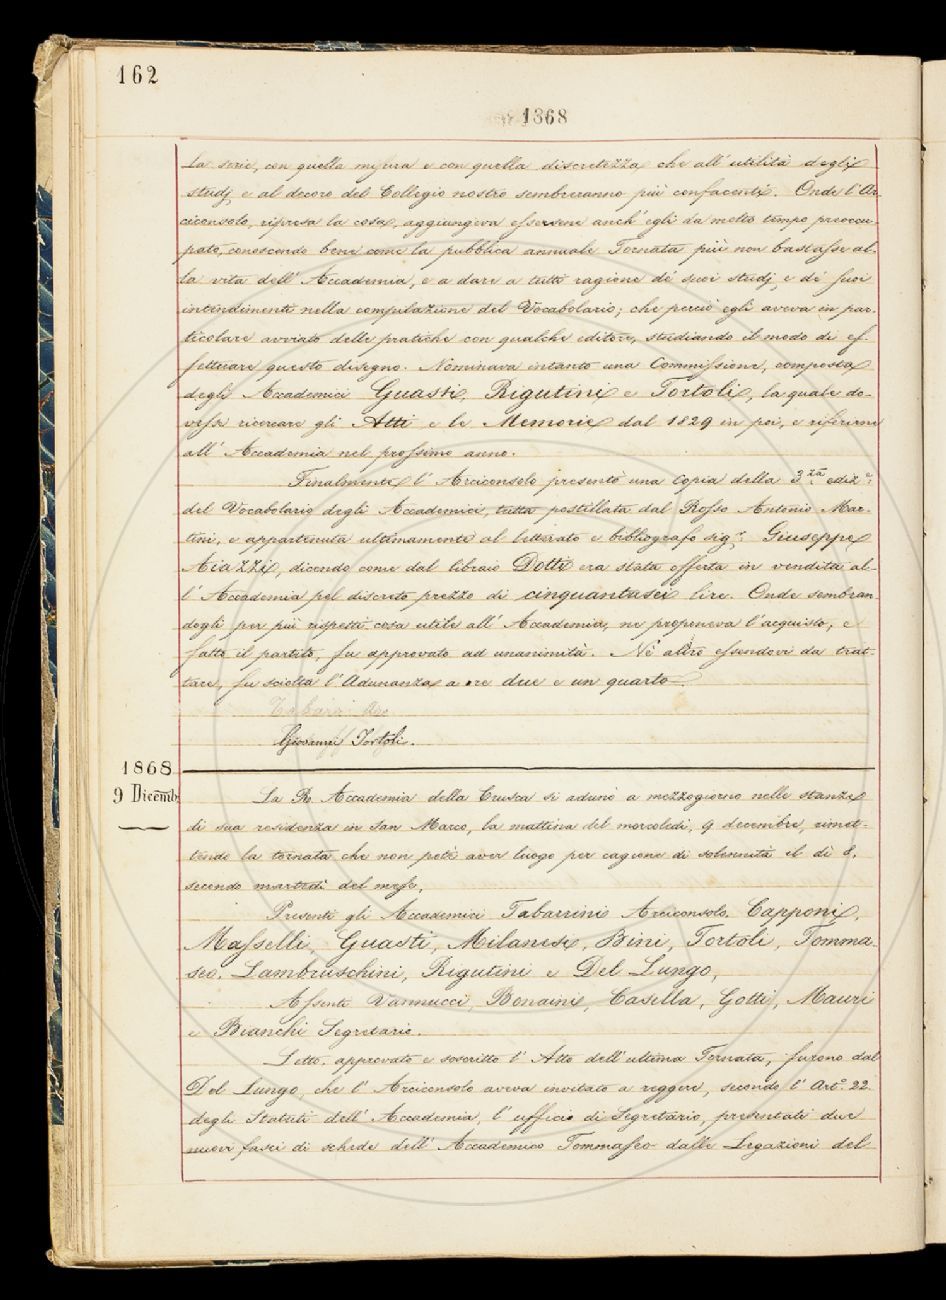 162
1868
la serie, con quella misura e con quella discretezza che all'utilità degli
studj e al decoro del Collegio nostro sembreranno più confacenti. Onde l'Ar-
ciconsolo, ripresa la cosa, aggiungeva essersene anch'egli da molto tempo preoccu-
pato, conoscendo bene come la pubblica annuale Tornata più non bastasse al-
la vita dell'Accademia, e a dare a tutti ragione de' suoi studj e de' suoi
intendimenti nella compilazione del Vocabolario; che perciò egli aveva in par-
ticolare avviato delle pratiche con qualche editore, studiando il modo di ef-
fettuare questo disegno. Nominava intanto una Commissione, composta
degli Accademici Guasti, Rigutini e Tortoli, la quale do-
vesse ricercare gli Atti e le Memorie dal 1829 in poi, e riferirne
all'Accademia nel prossimo anno.
Finalmente l'Arciconsolo presentò una copia della 3.za ediz.e
del Vocabolario degli Accademici, tutta postillata dal Rosso Antonio Mar-
tini, e appartenuta ultimamente al letterato e bibliografo sig.r Giuseppe
Aiazzi, dicendo come dal libraio Dotti era stata offerta in vendita al-
l'Accademia pel discreto prezzo di cinquantasei lire. Onde sembran-
dogli per più rispetti cosa utile all'Accademia, ne proponeva l'acquisto, e
fatto il partito, fu approvato ad unanimità. Nè altro essendovi da trat-
tare, fu sciolta l'Adunanza a ore due e un quarto.
Tabarri Arc.
Giovanni Tortoli.
1868
9 Dicemb.
La R. Accademia della Crusca si adunò a mezzogiorno nelle stanze
di sua residenza in San Marco, la mattina del mercoledì, 9 decembre, rimet-
tendo la tornata che non potè aver luogo per cagione di solennità il dì 8,
secondo martedì del mese.
Presenti gli Accademici Tabarrini Arciconsolo, Capponi,
Masselli, Guasti, Milanesi, Bini, Tortoli, Tomma-
seo, Lambruschini, Rigutini e Del Lungo.
Assenti Vannucci, Bonaini, Casella, Gotti, Mauri
e Bianchi Segretario.
Letto, approvato e soscritto l'Atto dell'ultima Tornata, furono dal
Del Lungo, che l'Arciconsolo aveva invitato a reggere, secondo l'Art.o 22
degli Statuti dell'Accademia, l'ufficio di Segretario, presentati due
nuovi fasci di schede dell'Accademico Tommaseo dalle Legazioni del